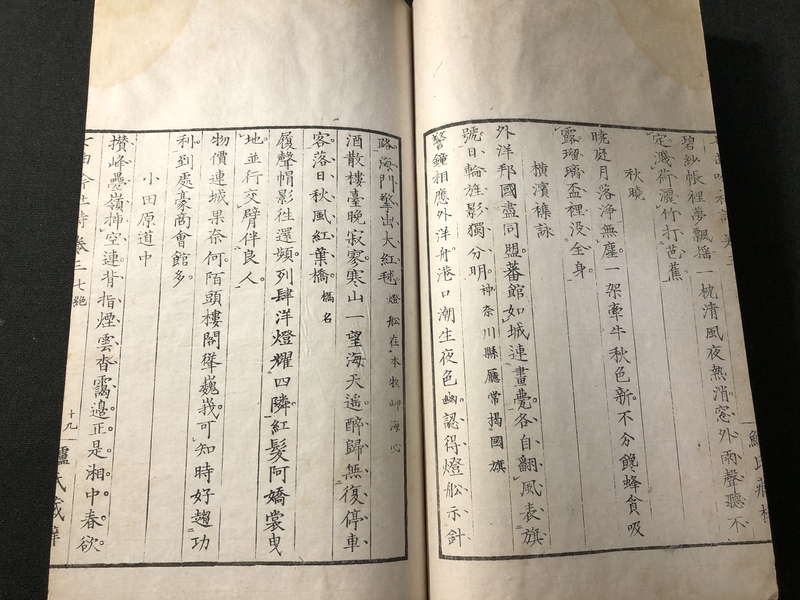 碧紗帳裡夢飄搖一枕清風夜熱消窓外雨聲聽不
定濺荷灑竹打芭蕉
秋曉
曉庭月落淨無塵一架牽牛秋色新不分饞蜂貪吸
露瑠璃盃裡沒全身
橫濱襍詠
外洋邦國盡同盟蕃館如城連畫甍各自翻風表旗
號日輪旌影獨分明 神奈川縣廳常揭國旗
警鐘相應外洋舟港口潮生夜色幽認得燈舩示針
路海門擎出大紅毬 燈舩在本牧岬海心
酒散樓臺晚寂寥寒山一望海天遙醉歸無復停車
客落日秋風紅葉橋 橋名
履聲帽影往還頻列肆洋燈耀四隣紅髮阿嬌裳曳
地並行交臂伴良人
物價連城果奈何陌頭樓閣聳巍峩可知時好趨功
利到處豪商會館多
小田原道中
攢峰疊嶺揷空連背指煙雲杳靄邊正是湘中春欲
詩卷三 七絕 十九